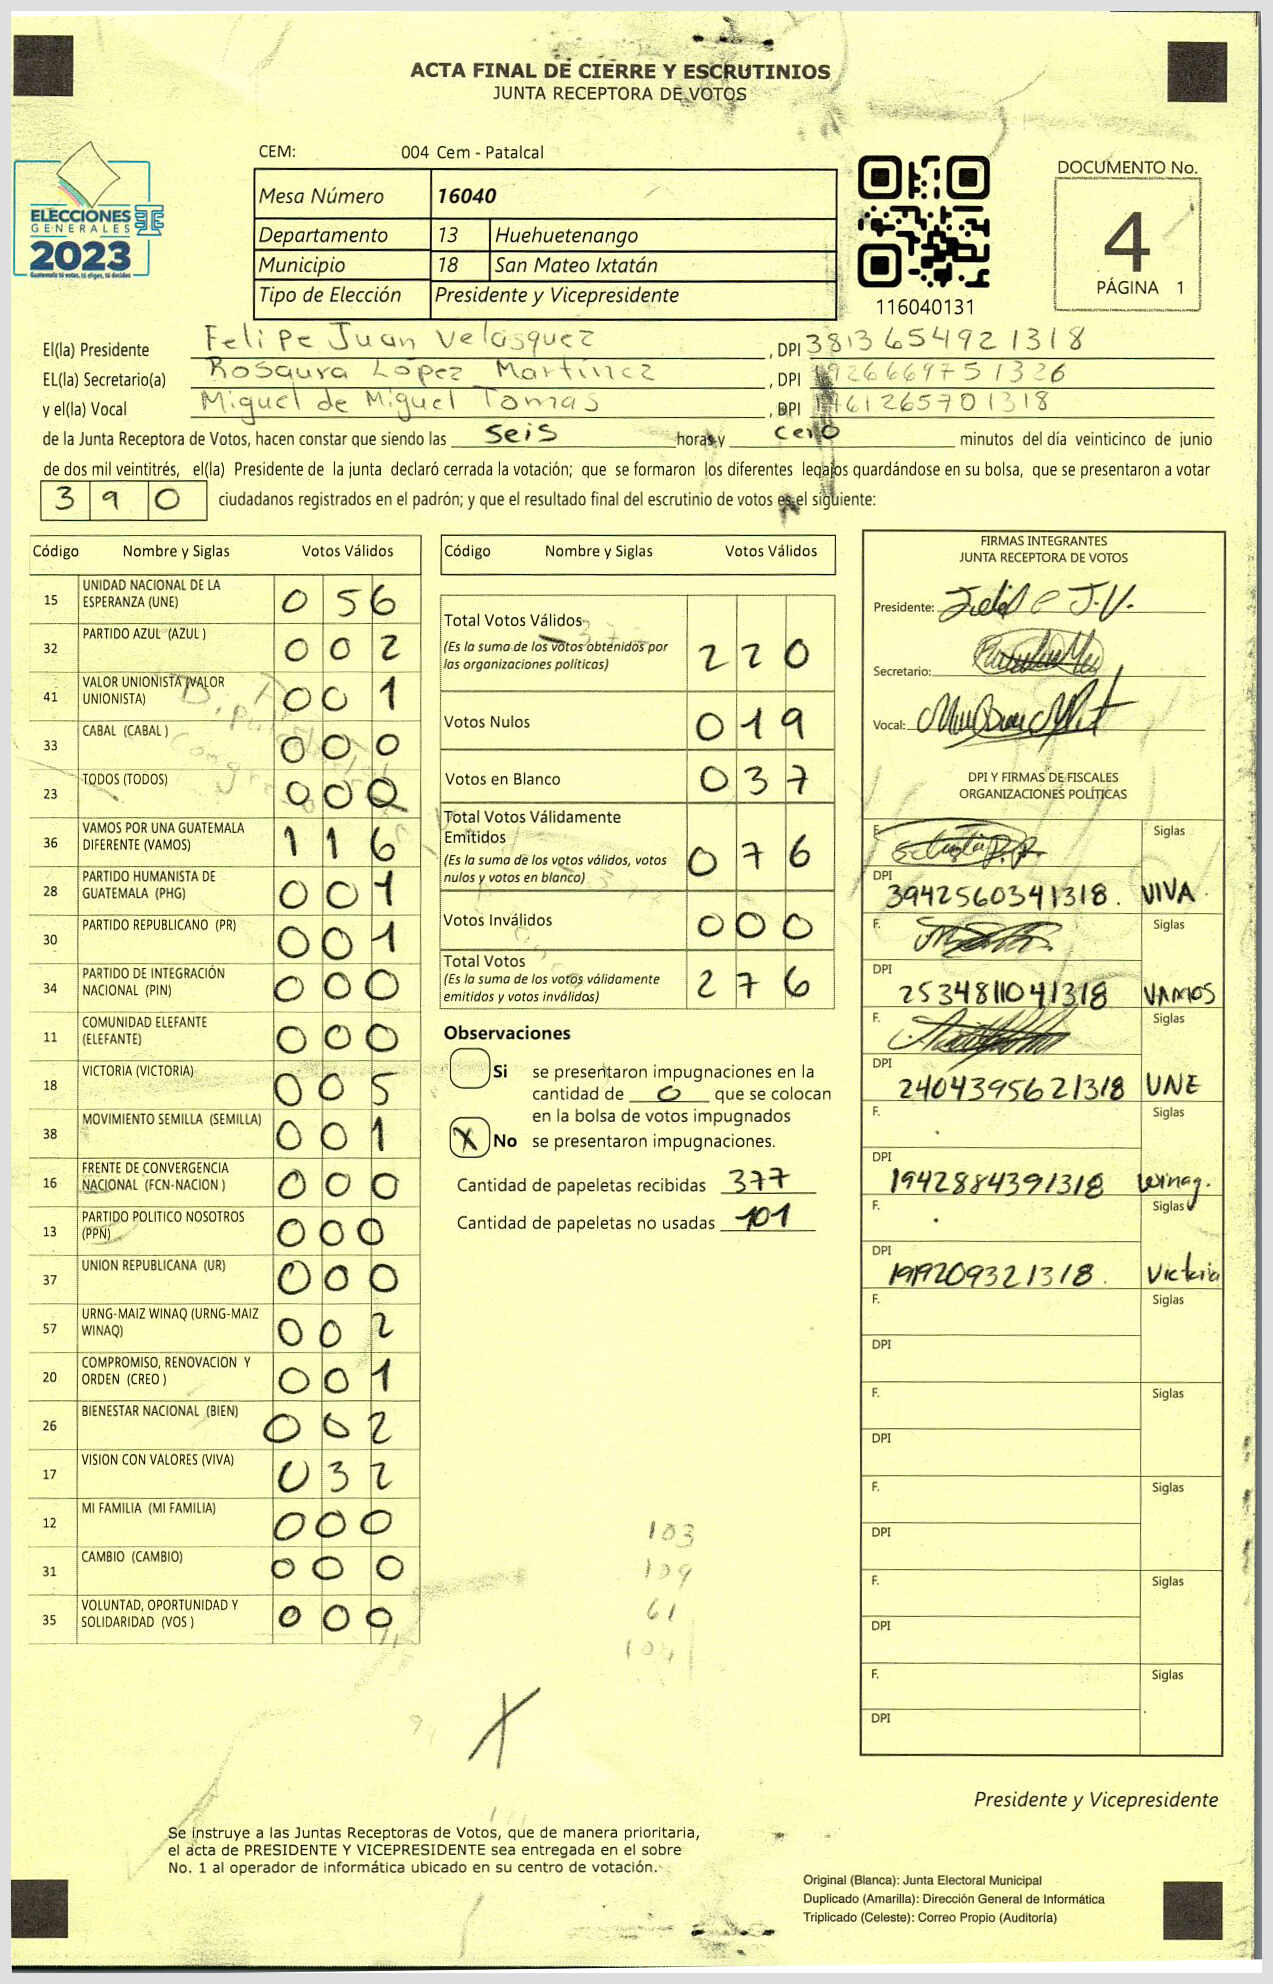 ACTA FINAL DE CIERRE Y ESCRUTINIOS
JUNTA RECEPTORA DE VOTOS
CEM: 004 Cem - Patalcal
ELECCIONES
GENERALES
2023
Guatemala tú votas, tú eliges, tú decides
Mesa Número 16040
Departamento 13 Huehuetenango
Municipio 18 San Mateo Ixtatán
Tipo de Elección Presidente y Vicepresidente
116040131
DOCUMENTO No.
4
PÁGINA 1
El(la) Presidente Felipe Juan Velasquez , DPI 3813654921318
EL(la) Secretario(a) Rosaura López Martínez , DPI 1926669751326
y el(la) Vocal Miguel de Miguel Tomas , DPI 1761265701318
de la Junta Receptora de Votos, hacen constar que siendo las seis horas y cero minutos del día veinticinco de junio
de dos mil veintitrés, el(la) Presidente de la junta declaró cerrada la votación; que se formaron los diferentes legajos guardándose en su bolsa, que se presentaron a votar
390 ciudadanos registrados en el padrón; y que el resultado final del escrutinio de votos es el siguiente:
Código Nombre y Siglas Votos Válidos
15 UNIDAD NACIONAL DE LA ESPERANZA (UNE) 0 5 6
32 PARTIDO AZUL (AZUL ) 0 0 2
41 VALOR UNIONISTA (VALOR UNIONISTA) 0 0 1
33 CABAL (CABAL ) 0 0 0
23 TODOS (TODOS) 0 0 0
36 VAMOS POR UNA GUATEMALA DIFERENTE (VAMOS) 1 1 6
28 PARTIDO HUMANISTA DE GUATEMALA (PHG) 0 0 1
30 PARTIDO REPUBLICANO (PR) 0 0 1
34 PARTIDO DE INTEGRACIÓN NACIONAL (PIN) 0 0 0
11 COMUNIDAD ELEFANTE (ELEFANTE) 0 0 0
18 VICTORIA (VICTORIA) 0 0 5
38 MOVIMIENTO SEMILLA (SEMILLA) 0 0 1
16 FRENTE DE CONVERGENCIA NACIONAL (FCN-NACION ) 0 0 0
13 PARTIDO POLITICO NOSOTROS (PPN) 0 0 0
37 UNION REPUBLICANA (UR) 0 0 0
57 URNG-MAIZ WINAQ (URNG-MAIZ WINAQ) 0 0 2
20 COMPROMISO, RENOVACION Y ORDEN (CREO ) 0 0 1
26 BIENESTAR NACIONAL (BIEN) 0 0 2
17 VISION CON VALORES (VIVA) 0 3 2
12 MI FAMILIA (MI FAMILIA) 0 0 0
31 CAMBIO (CAMBIO) 0 0 0
35 VOLUNTAD, OPORTUNIDAD Y SOLIDARIDAD (VOS ) 0 0 0
Código Nombre y Siglas Votos Válidos
Total Votos Válidos
(Es la suma de los votos obtenidos por las organizaciones políticas) 2 2 0
Votos Nulos 0 1 9
Votos en Blanco 0 3 7
Total Votos Válidamente Emitidos
(Es la suma de los votos válidos, votos nulos y votos en blanco) 0 7 6
Votos Inválidos 0 0 0
Total Votos
(Es la suma de los votos válidamente emitidos y votos inválidos) 2 7 6
Observaciones
Si se presentaron impugnaciones en la
cantidad de 0 que se colocan
en la bolsa de votos impugnados
X No se presentaron impugnaciones.
Cantidad de papeletas recibidas 377
Cantidad de papeletas no usadas 101
103
109
61
104
FIRMAS INTEGRANTES
JUNTA RECEPTORA DE VOTOS
Presidente: Felipe J.V.
Secretario:
Vocal:
DPI Y FIRMAS DE FISCALES
ORGANIZACIONES POLÍTICAS
F. Siglas
DPI 3942560341318. VIVA.
F. Siglas
DPI 2534811041318 VAMOS
F. Siglas
DPI 2404395621318 UNE
F. Siglas
DPI 1942884391318 Winaq.
F. Siglas
DPI 1919209321318. Victoria
F. Siglas
DPI
F. Siglas
DPI
F. Siglas
DPI
F. Siglas
DPI
F. Siglas
DPI
Presidente y Vicepresidente
Se instruye a las Juntas Receptoras de Votos, que de manera prioritaria,
el acta de PRESIDENTE Y VICEPRESIDENTE sea entregada en el sobre
No. 1 al operador de informática ubicado en su centro de votación.
Original (Blanca): Junta Electoral Municipal
Duplicado (Amarilla): Dirección General de Informática
Triplicado (Celeste): Correo Propio (Auditoría)